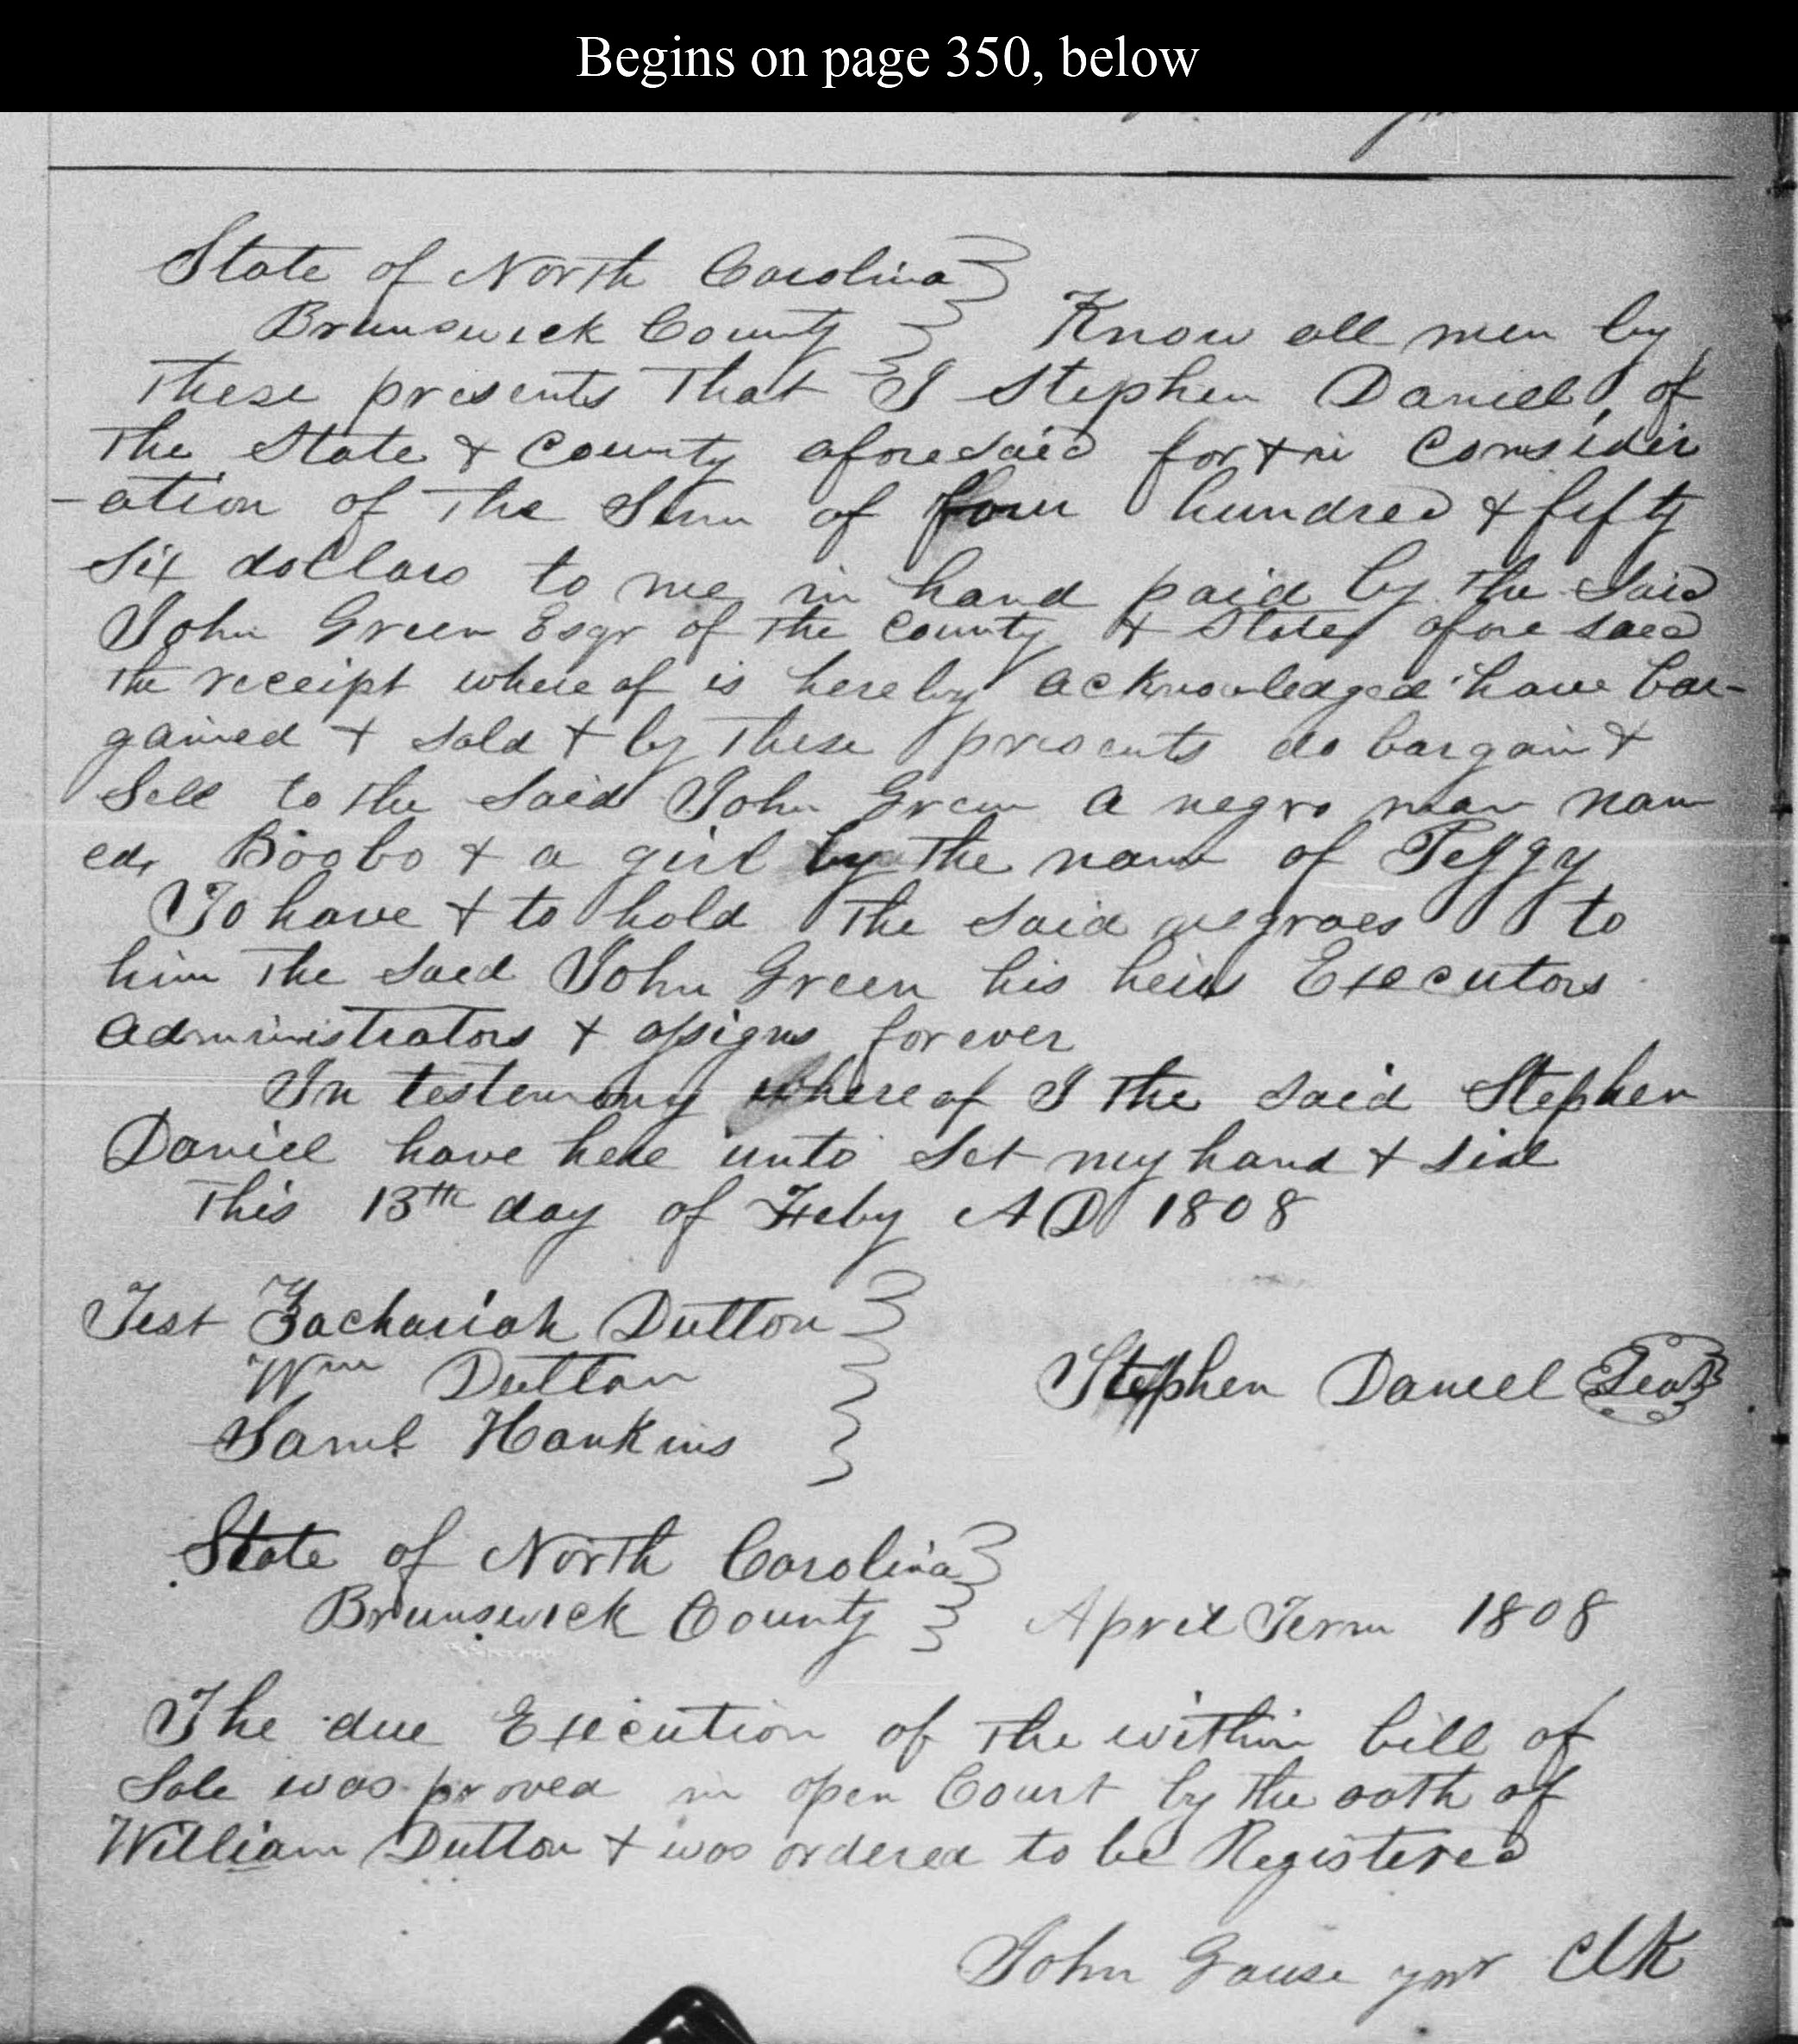 Begins on page 350, below
State of North Carolina
Brunswick County Know all men by
These presents That I Stephen Daniel of
The State & County aforesaid for & in Consider
-ation of The Sum of four hundred & fifty
Six dollars to me in hand paid by the Said
John Green Esqr of The County & State afore said
the receipt where of is hereby acknowledged have bar-
gained & sold & by These presents do bargain &
Sell to the Said John Green a negro man nam
ed, Boobo & a girl by the name of Peggy
To have & to hold The said negroes to
him The said John Green his heirs Executors
administrators & assigns forever
In testemony where of I The said Stephen
Daniel have here unto Set my hand & seal
This 13th day of Feby AD 1808
Test Zachariah Dutton
Wm Dutton
Stephen Daniel Seal
Saml Hankins
State of North Carolina
Brunswick County April Term 1808
The due Execution of The within bill of
Sale was proved in open Court by the oath of
William Dutton & was ordered to be Registered
John Gause jnr Clk